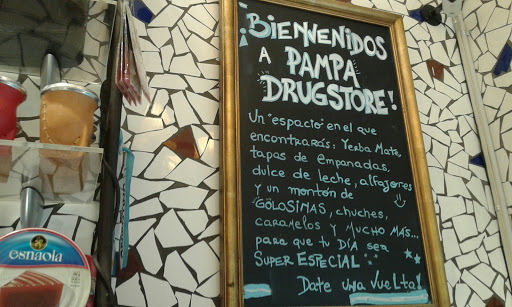 ¡BIENVENIDOS
A PAMPA
DRUGSTORE!
Un "espacio" en el que
encontrarás: Yerba Mate,
tapas de empanadas,
dulce de leche, alfajores
y un montón de
GOLOSINAS, chuches,
caramelos y MUCHO MAS...
para que tu DÍA sea
SUPER ESPECIAL.
Date una vuelta!
esnaola